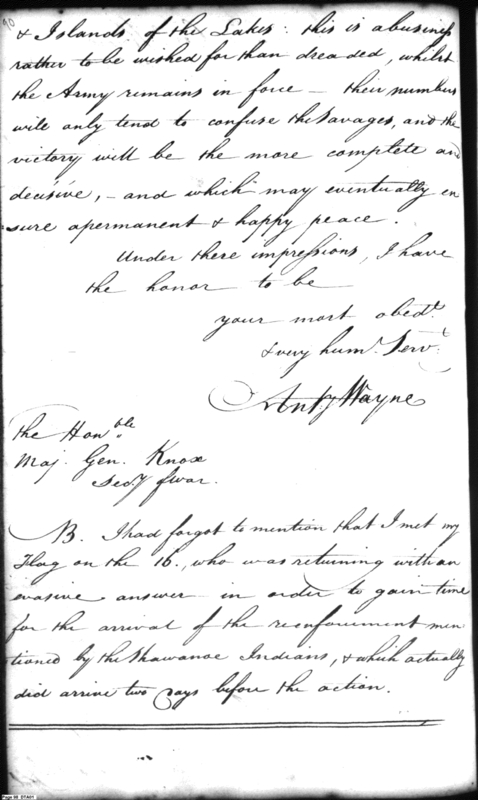 90
& Islands of the Lakes: this is a business
rather to be wished for than dreaded, whilst
the Army remains in force — their numbers
will only tend to confuse the Savages, and the
victory will be the more complete and
decisive, — and which may eventually en
sure a permanent & happy peace.
Under these impressions, I have
the honor to be
your most obedt.
& very humb. Servt.
Anty Wayne
The Honble
Maj. Gen. Knox
Secy of war.
NB. I had forgot to mention that I met my
Flag on the 16., who was returning with an
evasive answer in order to gain time
for the arrival of the reinforcement men
tioned by the Shawanoe Indians, & which actually
did arrive two days before the action.